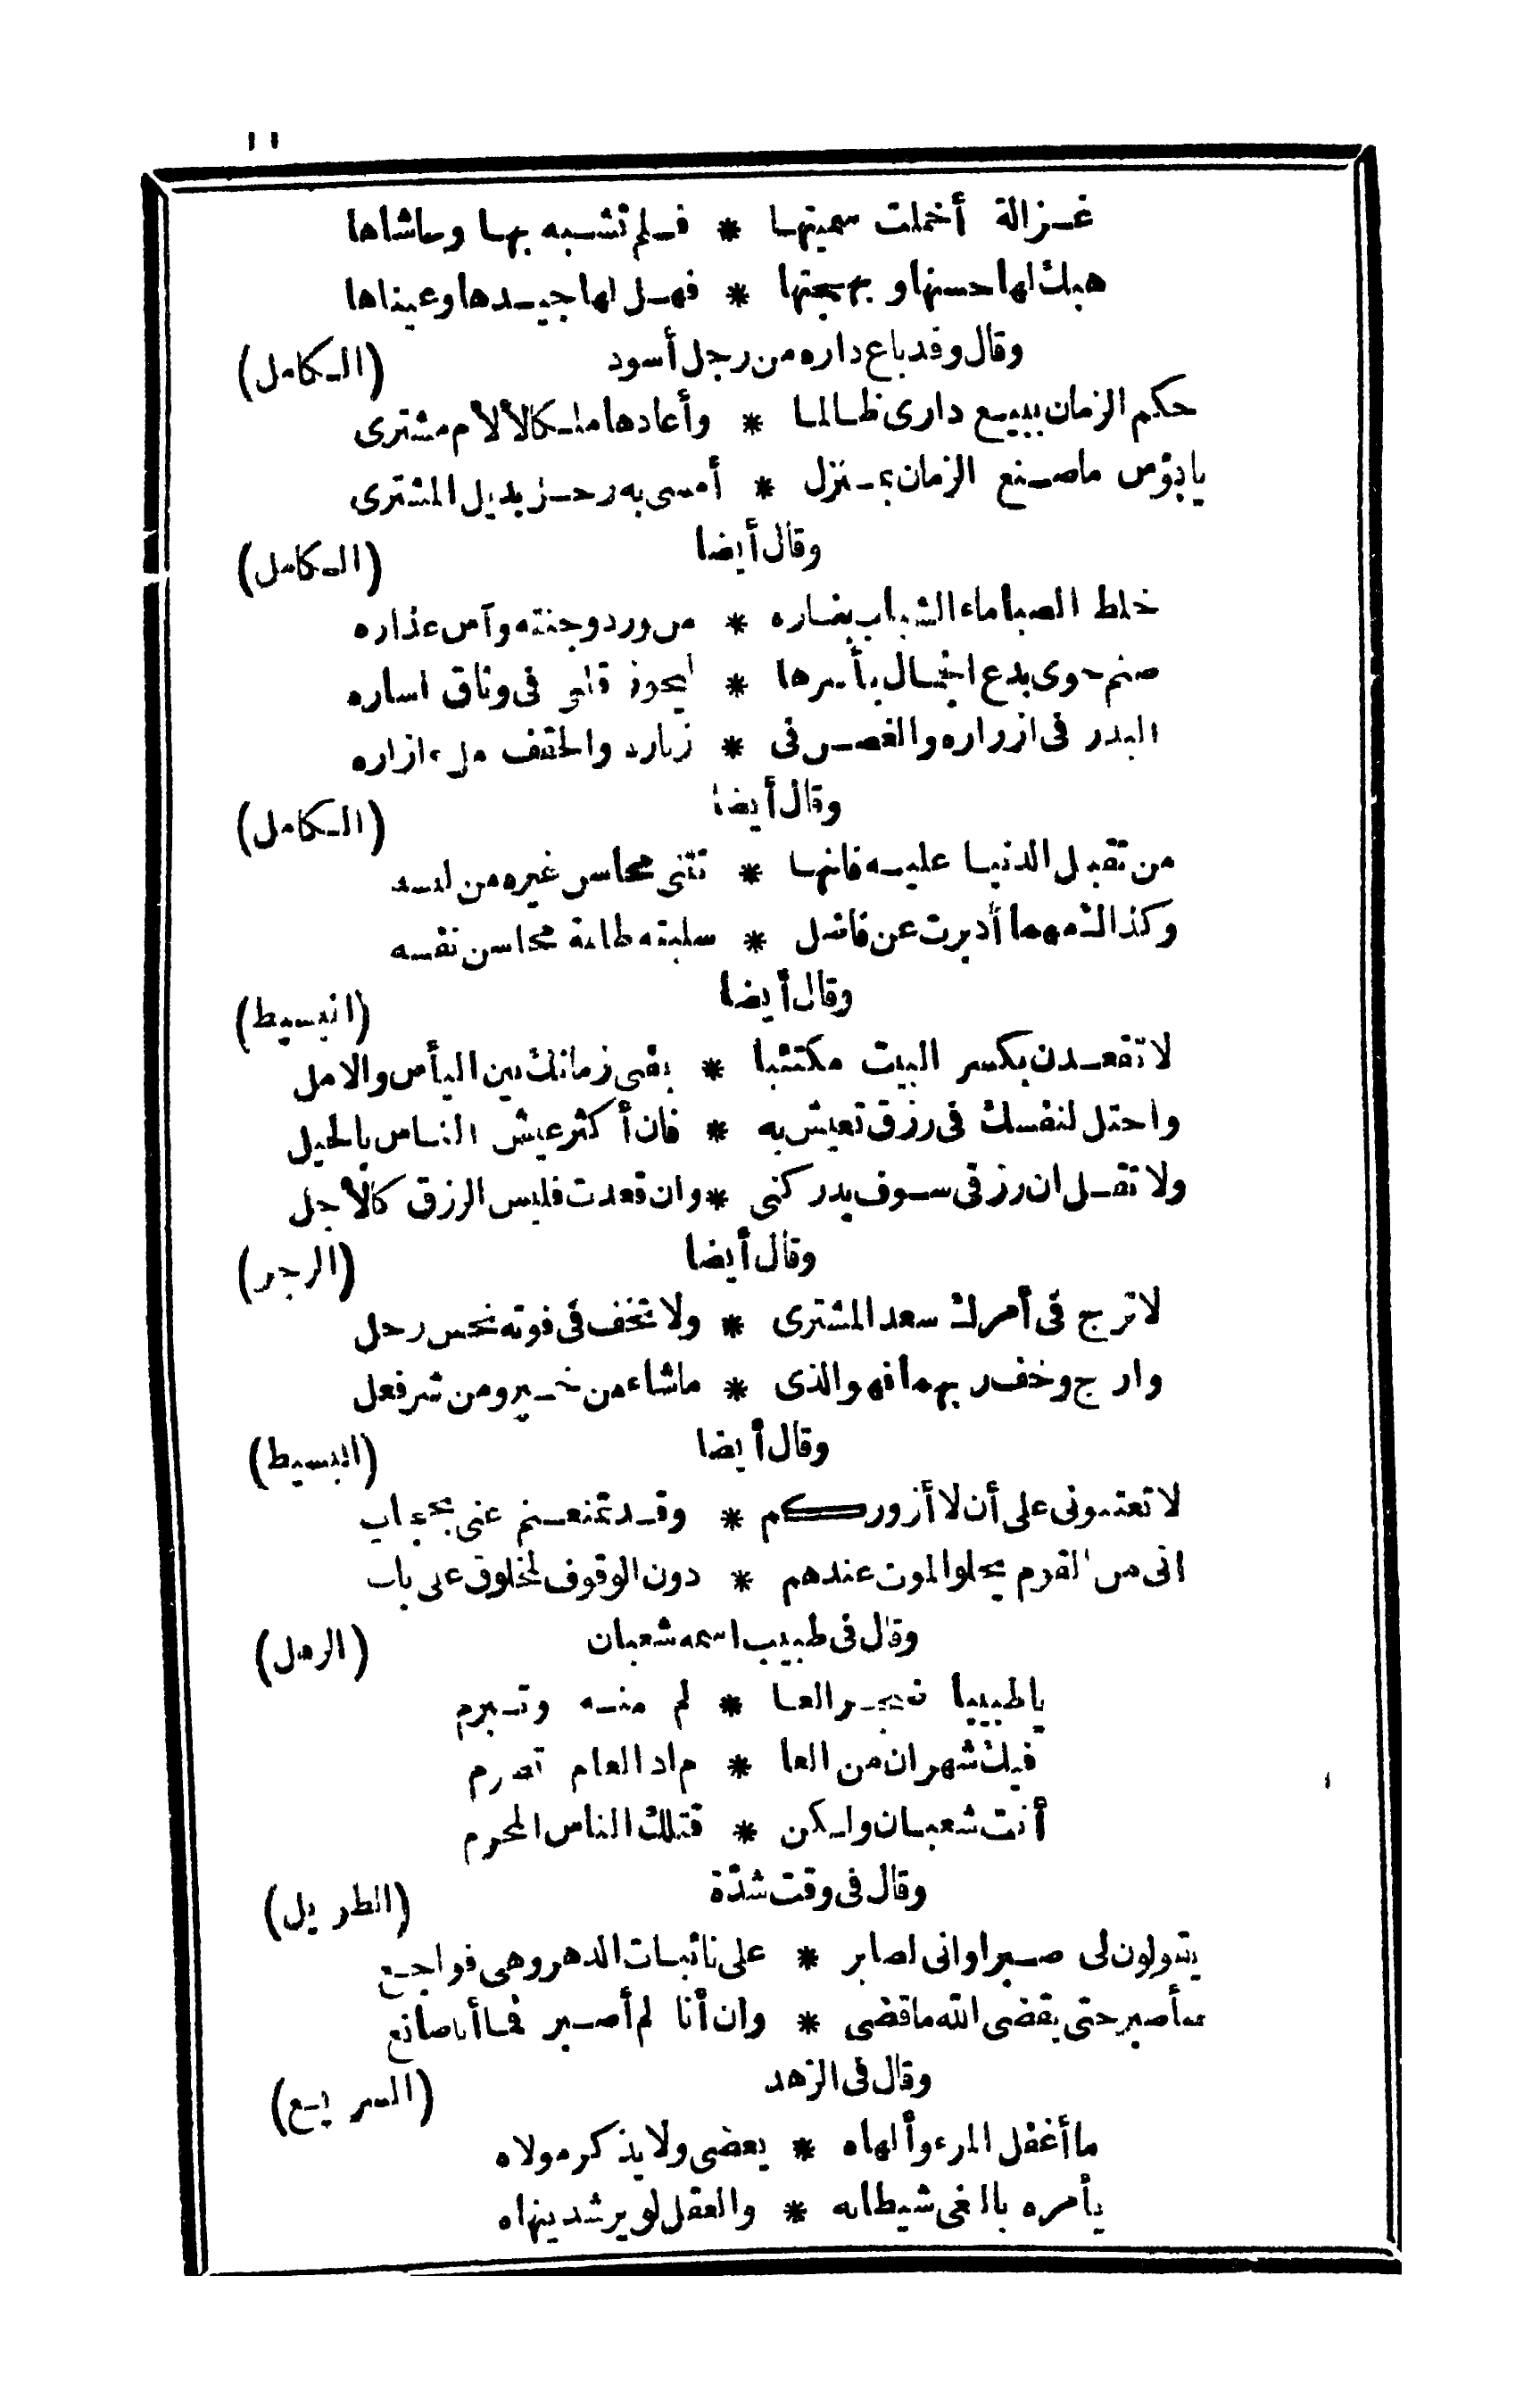 ١١
غزالة أخملت سميتها * فلم تشبه بها وحاشاها
هبك لها حسنها وبهجتها * فهل لها جيدها وعيناها
وقال وقد باع داره من رجل أسود (الكامل)
حكم الزمان ببيع دارى ظالما * وأعادها ملكا لألأم مشترى
يا بؤس ما صنع الزمان بمنزل * أمسى به زحل بديل المشترى
وقال أيضا (الكامل)
خلط الصبا ماء الشباب بناره * من ورد وجنته وآس عذاره
صنم حوى بدع الجمال بأسرها * ليحوز قلبى فى وثاق اساره
البدر فى ازراره والغصن فى * زناره والحقف ملء ازاره
وقال أيضا (الكامل)
من تقبل الدنيا عليه فانها * تثنى محاسن غيره من لبسه
وكذاك مهما أدبرت عن فاضل * سلبته ظالمة محاسن نفسه
وقال أيضا (البسيط)
لا تقعدن بكسر البيت مكتئبا * يفنى زمانك بين اليأس والامل
واحتل لنفسك فى رزق تعيش به * فان أكثر عيش الناس بالحيل
ولا تقل ان رزقى سوف يدركنى * وان قعدت فليس الرزق كالأجل
وقال أيضا (الرجز)
لا ترج فى أمرك سعد المشترى * ولا تخف فى فوته نحس زحل
وارج وخف ربهما فهو الذى * ما شاء من خير ومن شر فعل
وقال أيضا (البسيط)
لا تعتبونى على أن لا أزوركم * وقد تمنعتم عنى بحجاب
انى من القوم يحلو الموت عندهم * دون الوقوف لمخلوق على باب
وقال فى طبيب اسمه شعبان (الرمل)
يا طبيبا ضجر العا * لم منه وتبرم
فيك شهران من العا * م اذ العام تصرم
أنت شعبان ولكن * قتلك الناس المحرم
وقال فى وقت شدّة (الطويل)
يقولون لى صبرا وانى لصابر * على نائبات الدهر وهى فواجع
سأصبر حتى يقضى الله ما قضى * وان أنا لم أصبر فما أنا صانع
وقال فى الزهد (السريع)
ما أغفل المرء وألهاه * يعصى ولا يذكر مولاه
يأمره بالغى شيطانه * والعقل لو يرشد ينهاه